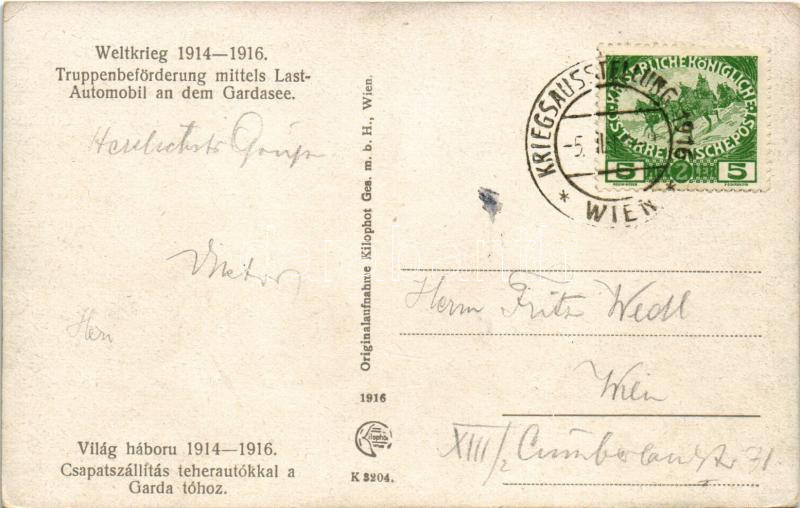 Weltkrieg 1914—1916.
Truppenbeförderung mittels Last-
Automobil an dem Gardasee.
Herzlichste Grüße
Herrn
Világ háboru 1914—1916.
Csapatszállítás teherautókkal a
Garda tóhoz.
Originalaufnahme Kilophot Ges. m. b. H., Wien.
1916
Kilophot
K 3204.
KRIEGSAUSSTELLUNG 1916
* WIEN *
-5.
KAISERLICHEKÖNIGLICHE
ÖSTERREICHISCHEPOST
5 2 5
Herrn Fritz Wedl
Wien
XIII/2 Cumberlandstr 71.